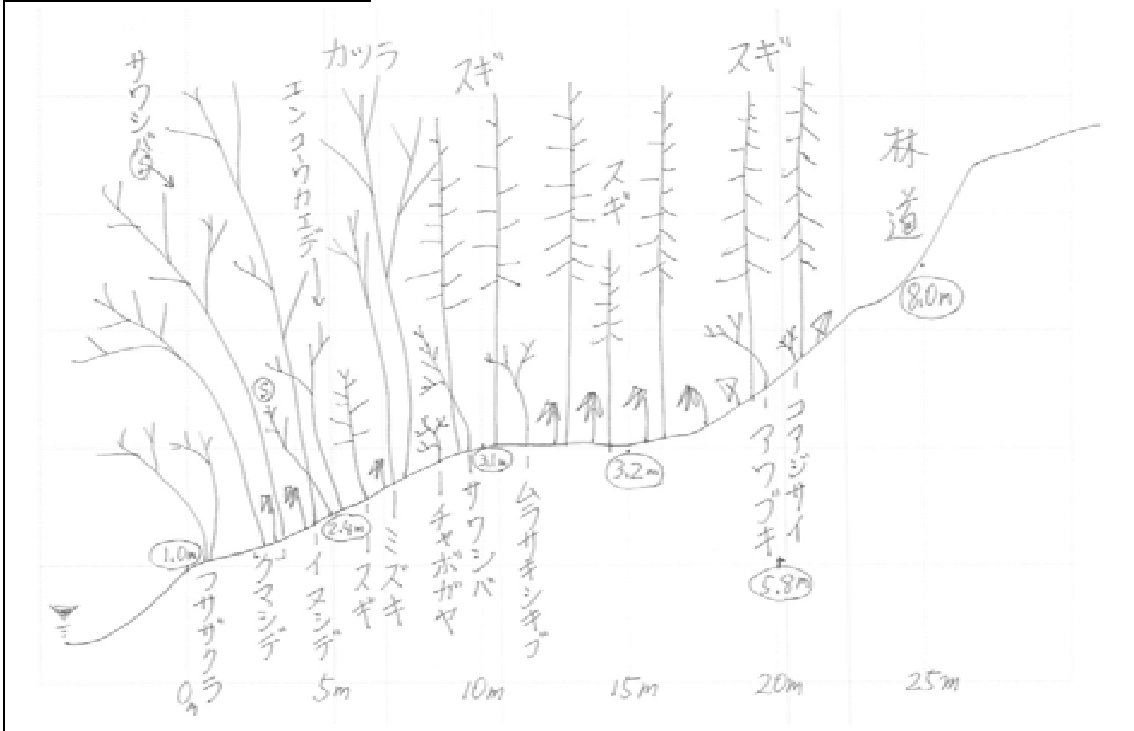 サワシバ
S
エンコウカエデ
カツラ
スギ
スギ
スギ
林道
8.0m
S
1.0m
2.4m
3.1m
3.2m
5.8m
フサザクラ
クマシデ
イヌシデ
スギ
ミズキ
チャボガヤ
サワシバ
ムラサキシキブ
アワブキ
コアジサイ
0m
5m
10m
15m
20m
25m